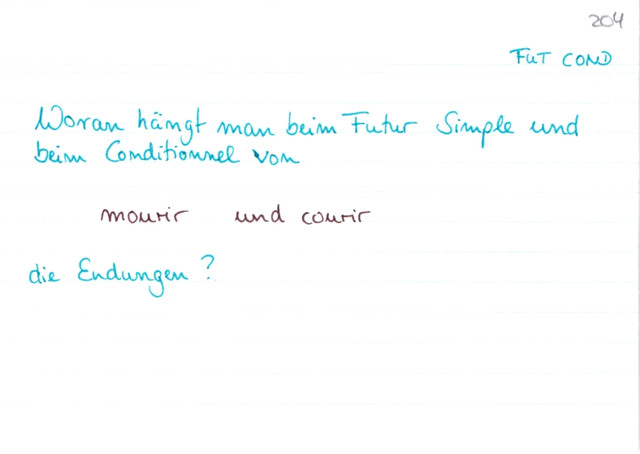 204
FUT COND
Woran hängt man beim Futur Simple und
beim Conditionnel von
mourir und courir
die Endungen?